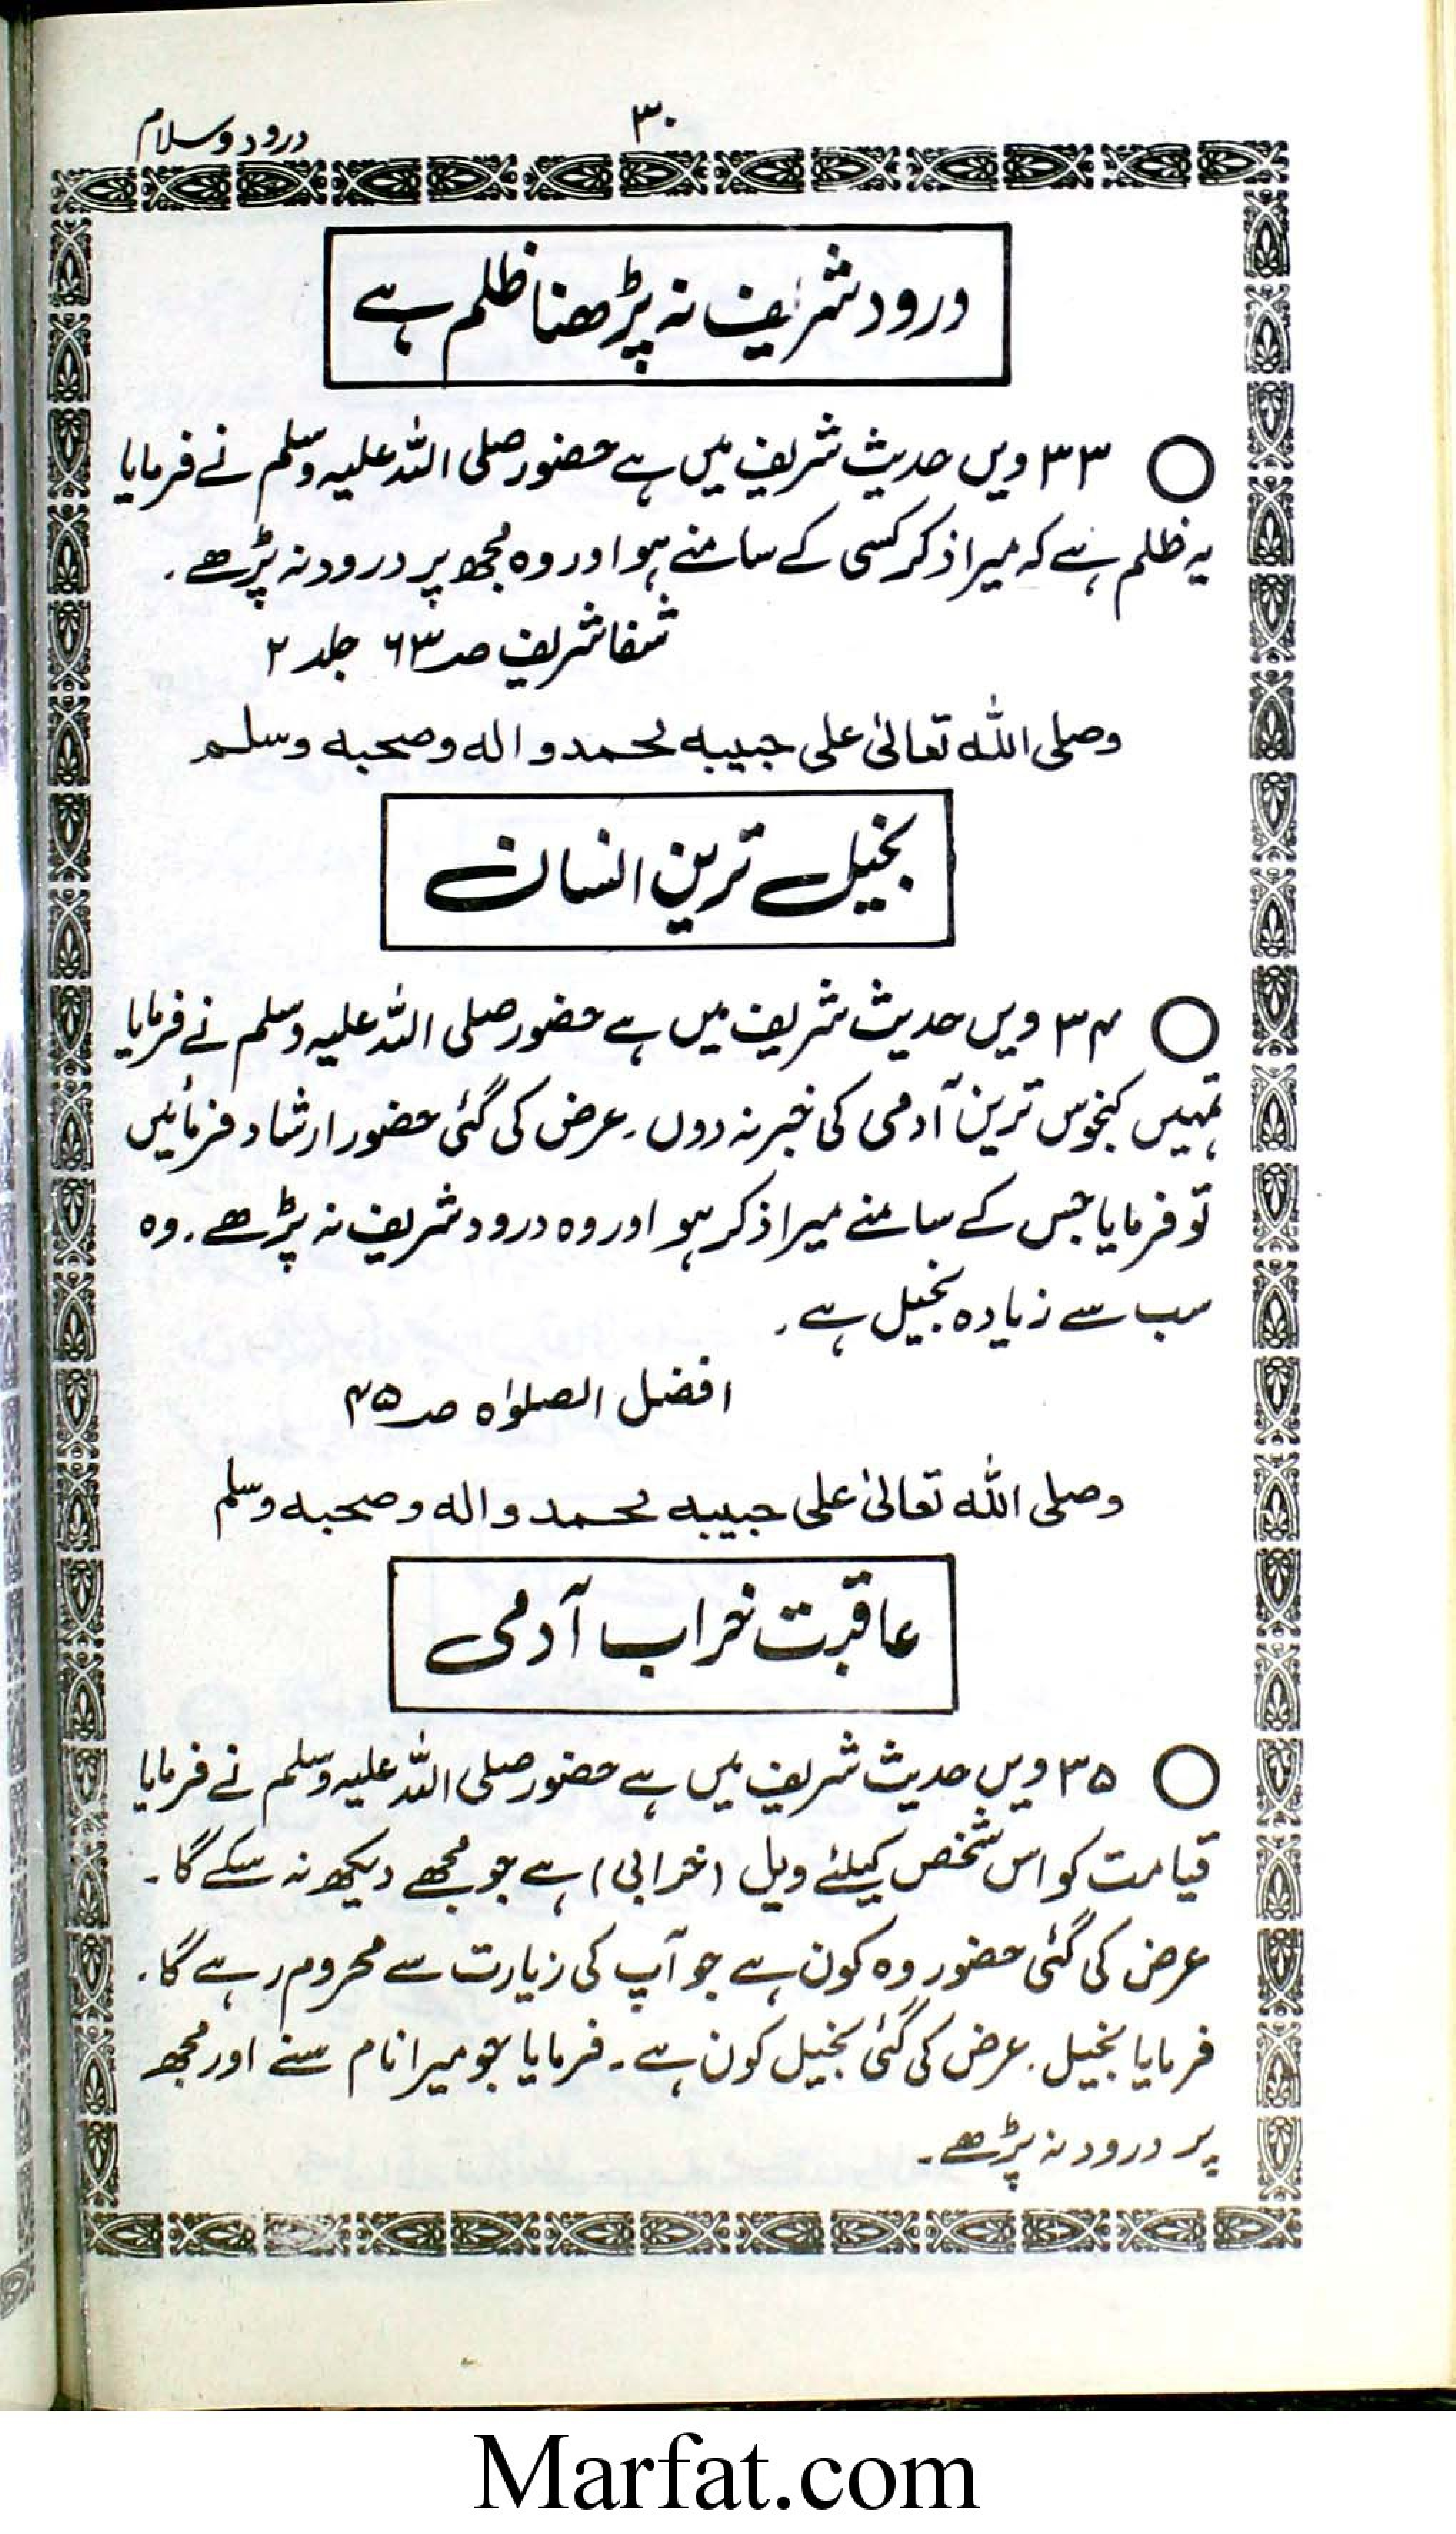 ۳۰
درود و سلام
درود شریف نہ پڑھنا ظلم ہے
۳۳ ویں حدیث شریف میں ہے حضور صلی اللہ علیہ وسلم نے فرمایا
یہ ظلم ہے کہ میرا ذکر کسی کے سامنے ہو اور وہ مجھ پر درود نہ پڑھے۔
شفا شریف صـ ۶۳ جلد ۲
وصلی اللہ تعالیٰ علی حبیبہ محمد و الہ و صحبہ وسلم
بخیل ترین انسان
۳۴ ویں حدیث شریف میں ہے حضور صلی اللہ علیہ وسلم نے فرمایا
تمہیں کنجوس ترین آدمی کی خبر نہ دوں۔ عرض کی گئی حضور ارشاد فرمائیں
تو فرمایا جس کے سامنے میرا ذکر ہو اور وہ درود شریف نہ پڑھے۔ وہ
سب سے زیادہ بخیل ہے۔
افضل الصلوٰہ صـ ۴۵
وصلی اللہ تعالیٰ علی حبیبہ محمد و الہ و صحبہ وسلم
عاقبت خراب آدمی
۳۵ ویں حدیث شریف میں ہے حضور صلی اللہ علیہ وسلم نے فرمایا
قیامت کو اس شخص کیلئے ویل (خرابی) ہے جو مجھے دیکھ نہ سکے گا۔
عرض کی گئی حضور وہ کون ہے جو آپ کی زیارت سے محروم رہے گا۔
فرمایا بخیل۔ عرض کی گئی بخیل کون ہے۔ فرمایا جو میرا نام سنے اور مجھ
پر درود نہ پڑھے۔
Marfat.com